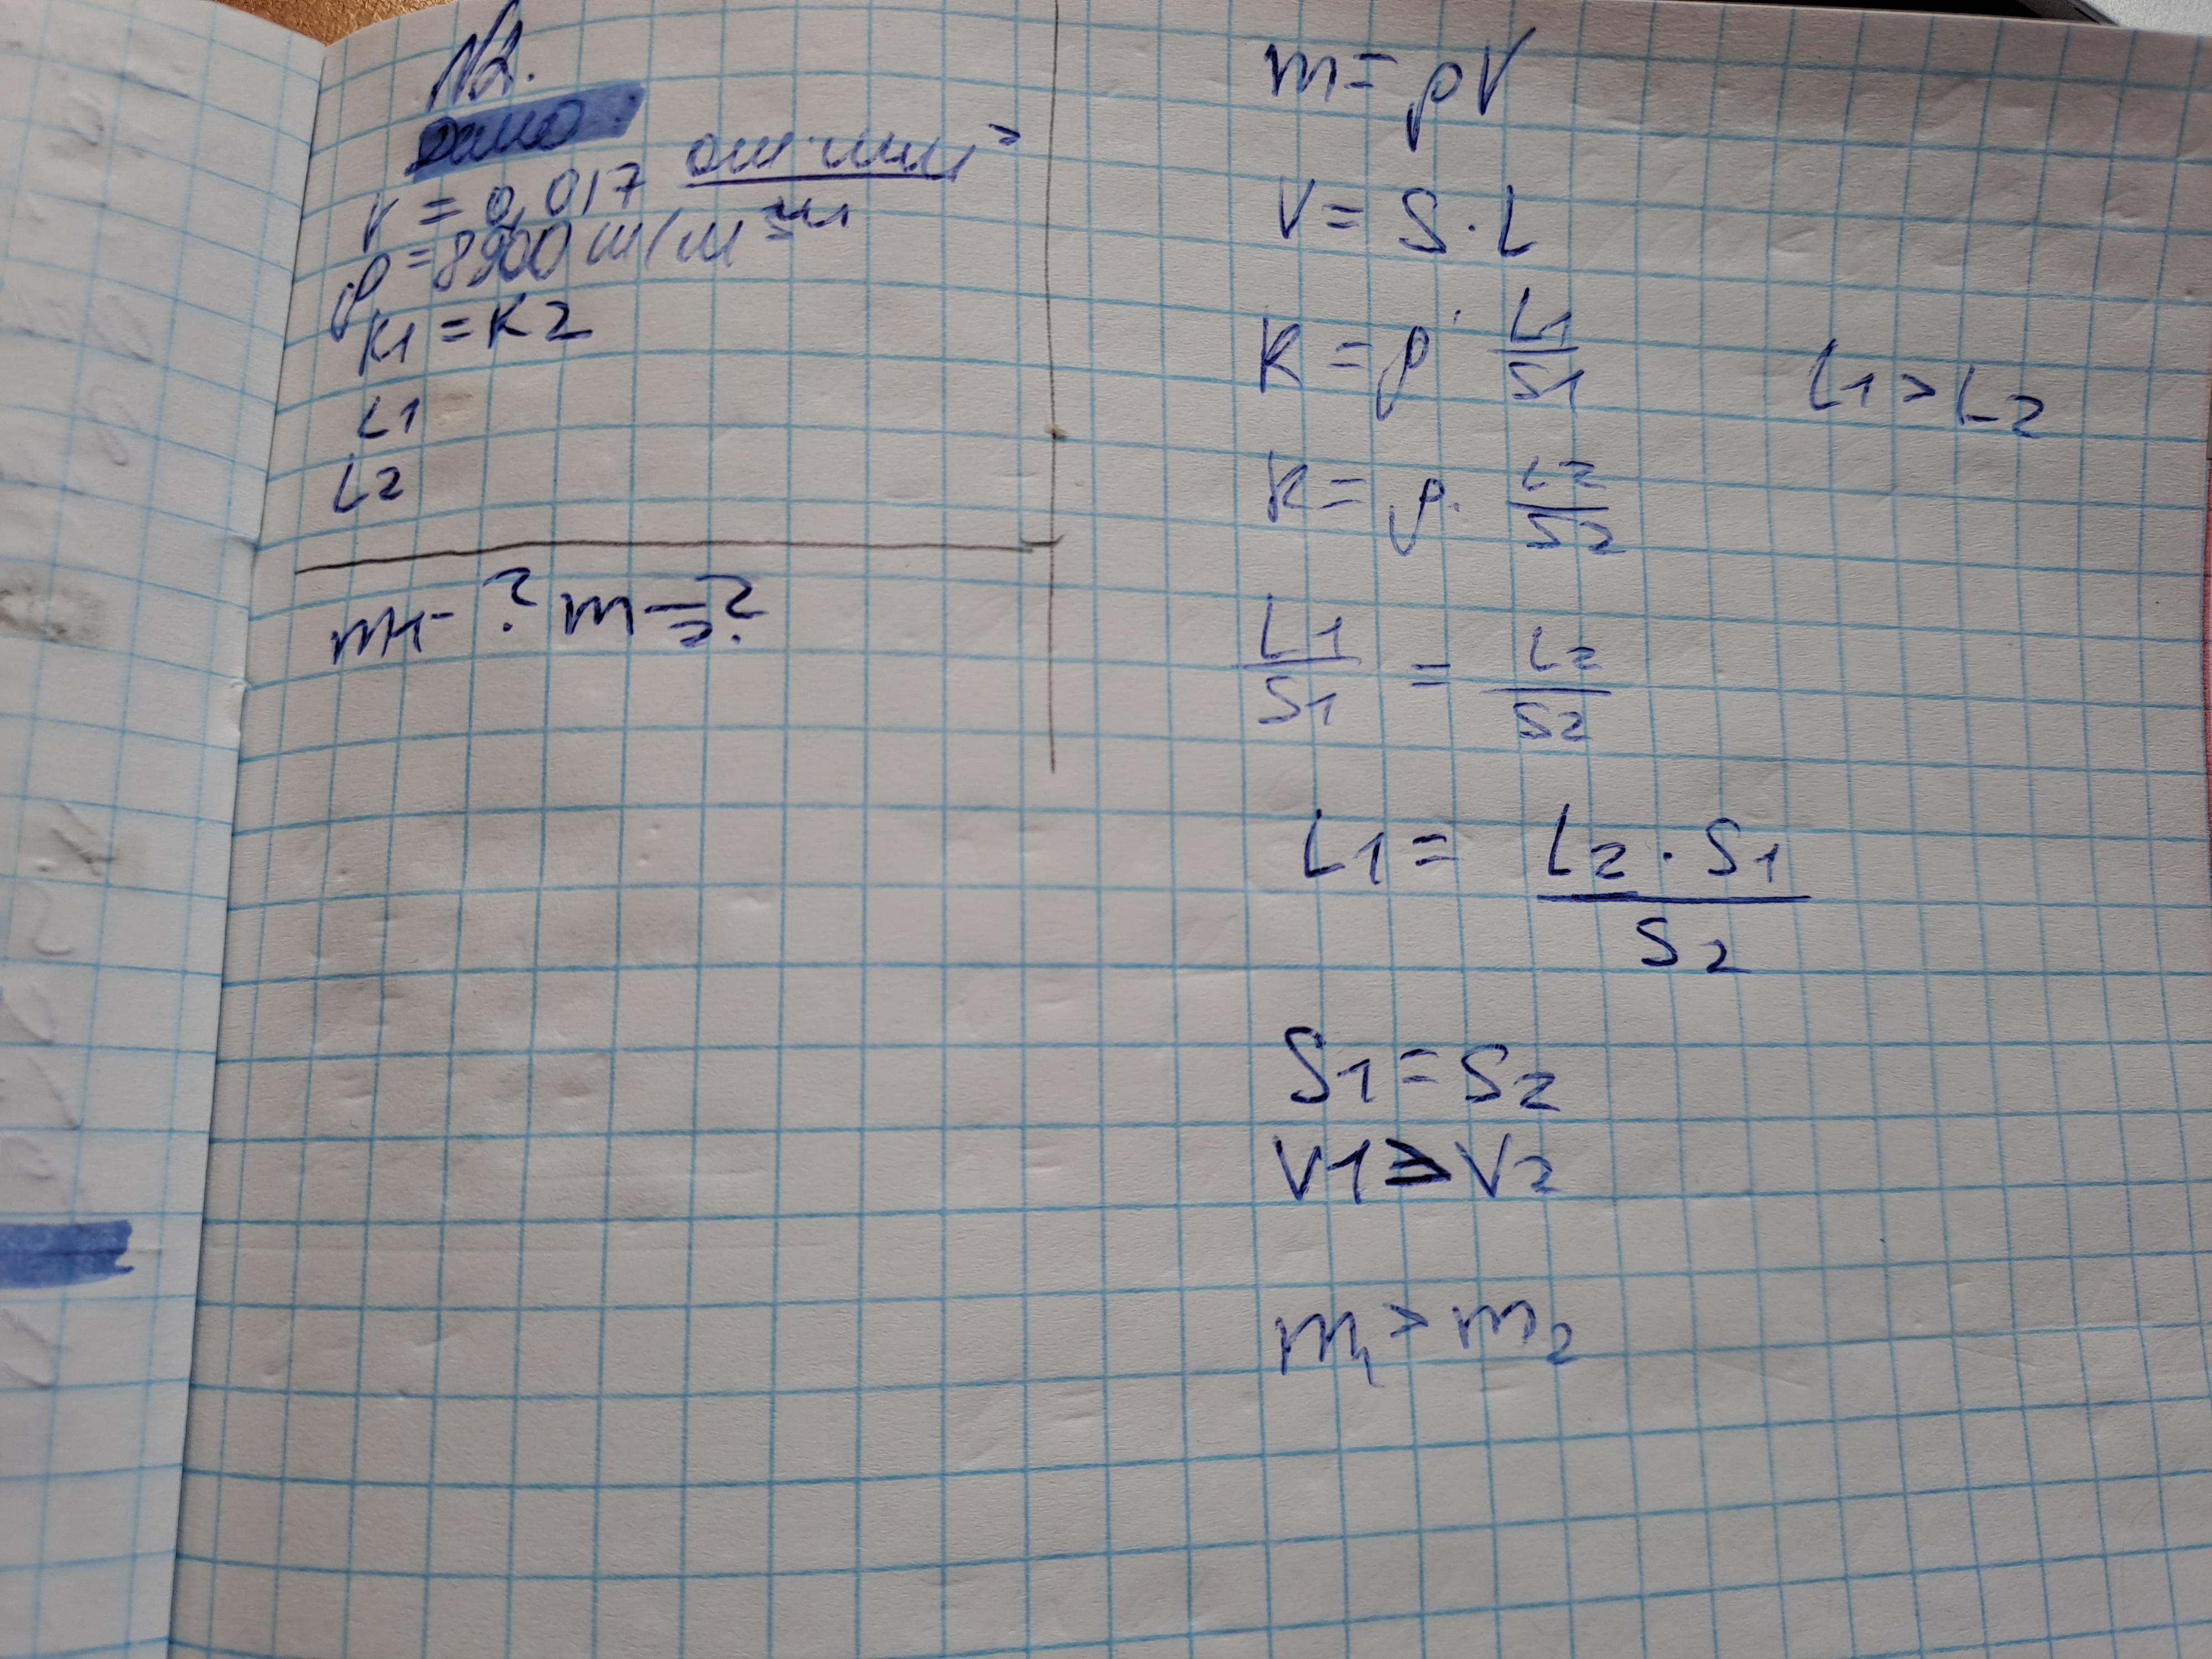 №2.
Дано:
V = 0,017 ом·мм²/м
ρ = 8900 т/м³
K1 = K2
L1
L2
m1-? m2=?
m = ρV
V = S · L
K = ρ · L1/S1
L1 > L2
K = ρ · L2/S2
L1/S1 = L2/S2
L1 = L2 · S1/S2
S1 = S2
V1 > V2
m1 > m2